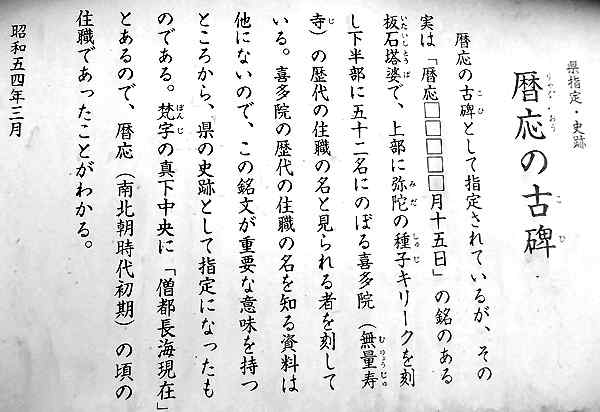 県指定・史跡
暦応の古碑
暦応の古碑として指定されているが、その
実は「暦応□□□□□月十五日」の銘のある
板石塔婆で、上部に弥陀の種子キリークを刻
し下半部に五十二名にのぼる喜多院（無量寿
寺）の歴代の住職の名と見られる者を刻して
いる。喜多院の歴代の住職の名を知る資料は
他にないので、この銘文が重要な意味を持つ
ところから、県の史跡として指定になったも
のである。梵字の真下中央に「僧都長海現在」
とあるので、暦応（南北朝時代初期）の頃の
住職であったことがわかる。
昭和五四年三月